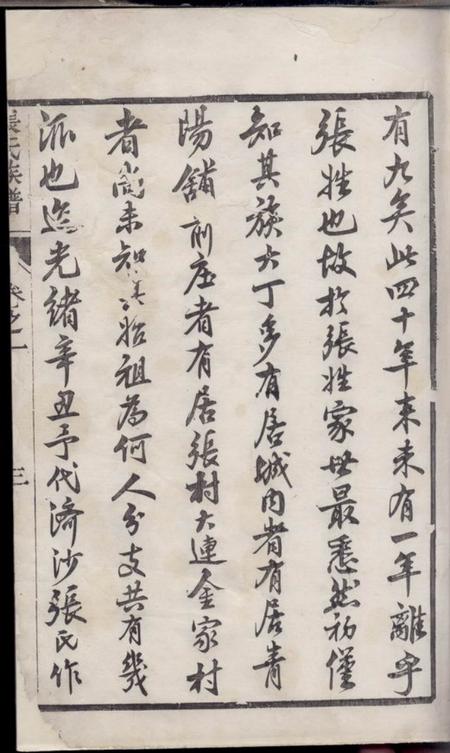 有九矣此四十年來未有一年離乎
張姓也故於張姓家世最悉然初僅
知其族大丁多有居城內者有居青
陽舖前庄者有居張村大連金家村
者尚未知其始祖為何人分支共有幾
派也迨光緒辛丑予代濟沙張氏作
張氏族譜
卷之一
三